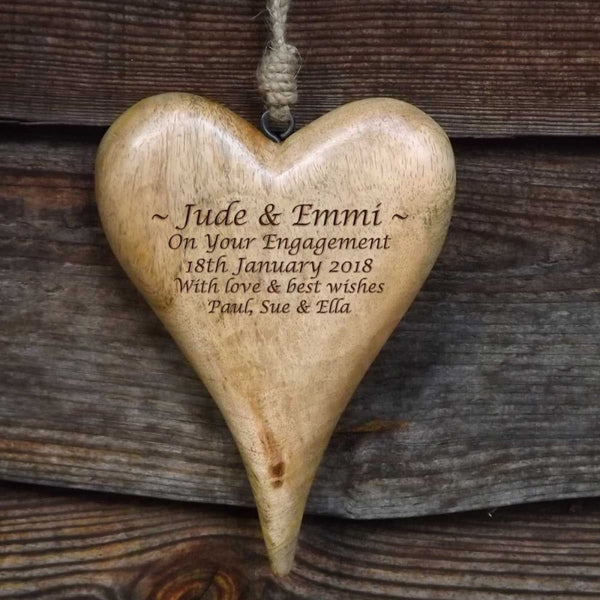 ~ Jude & Emmi ~
On Your Engagement
18th January 2018
With love & best wishes
Paul, Sue & Ella